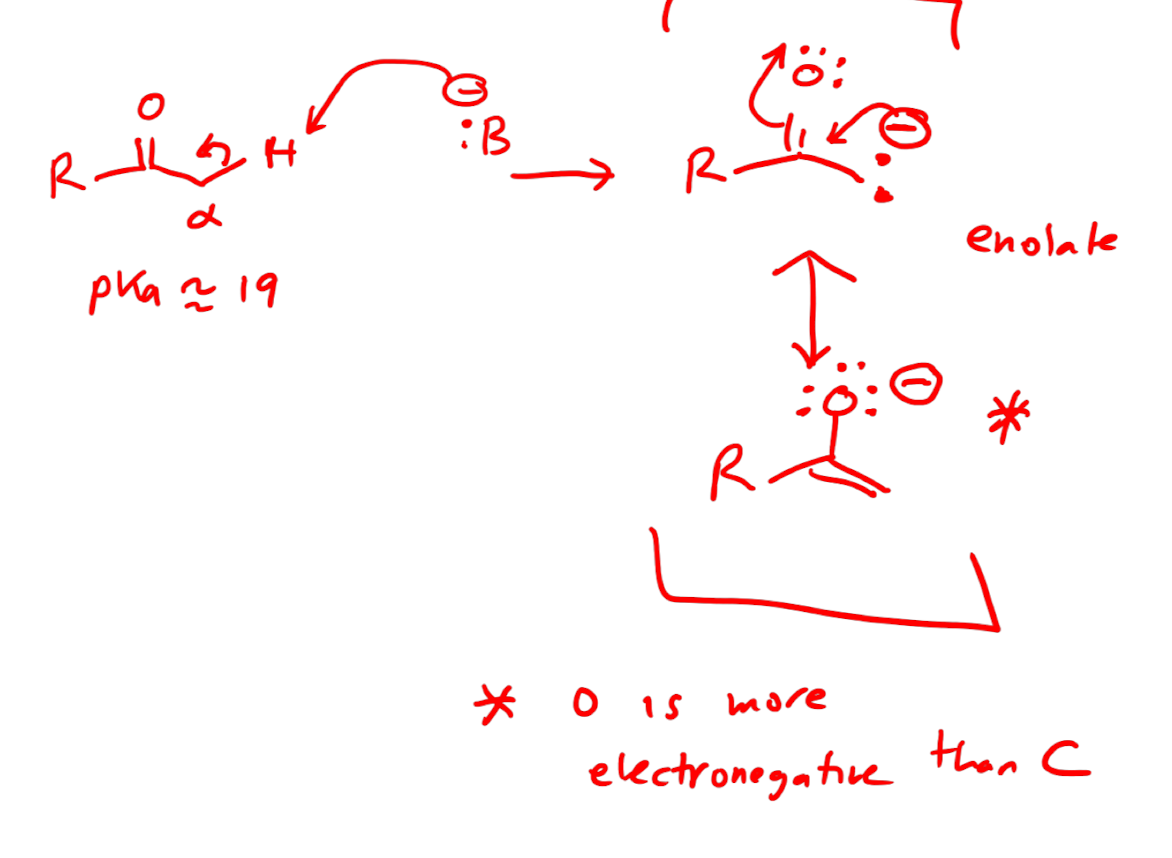 O
R H
α
⊖
:B
pKa ≈ 19
O
⊖
R
enolate
O ⊖
*
R
* O is more
electronegative than C